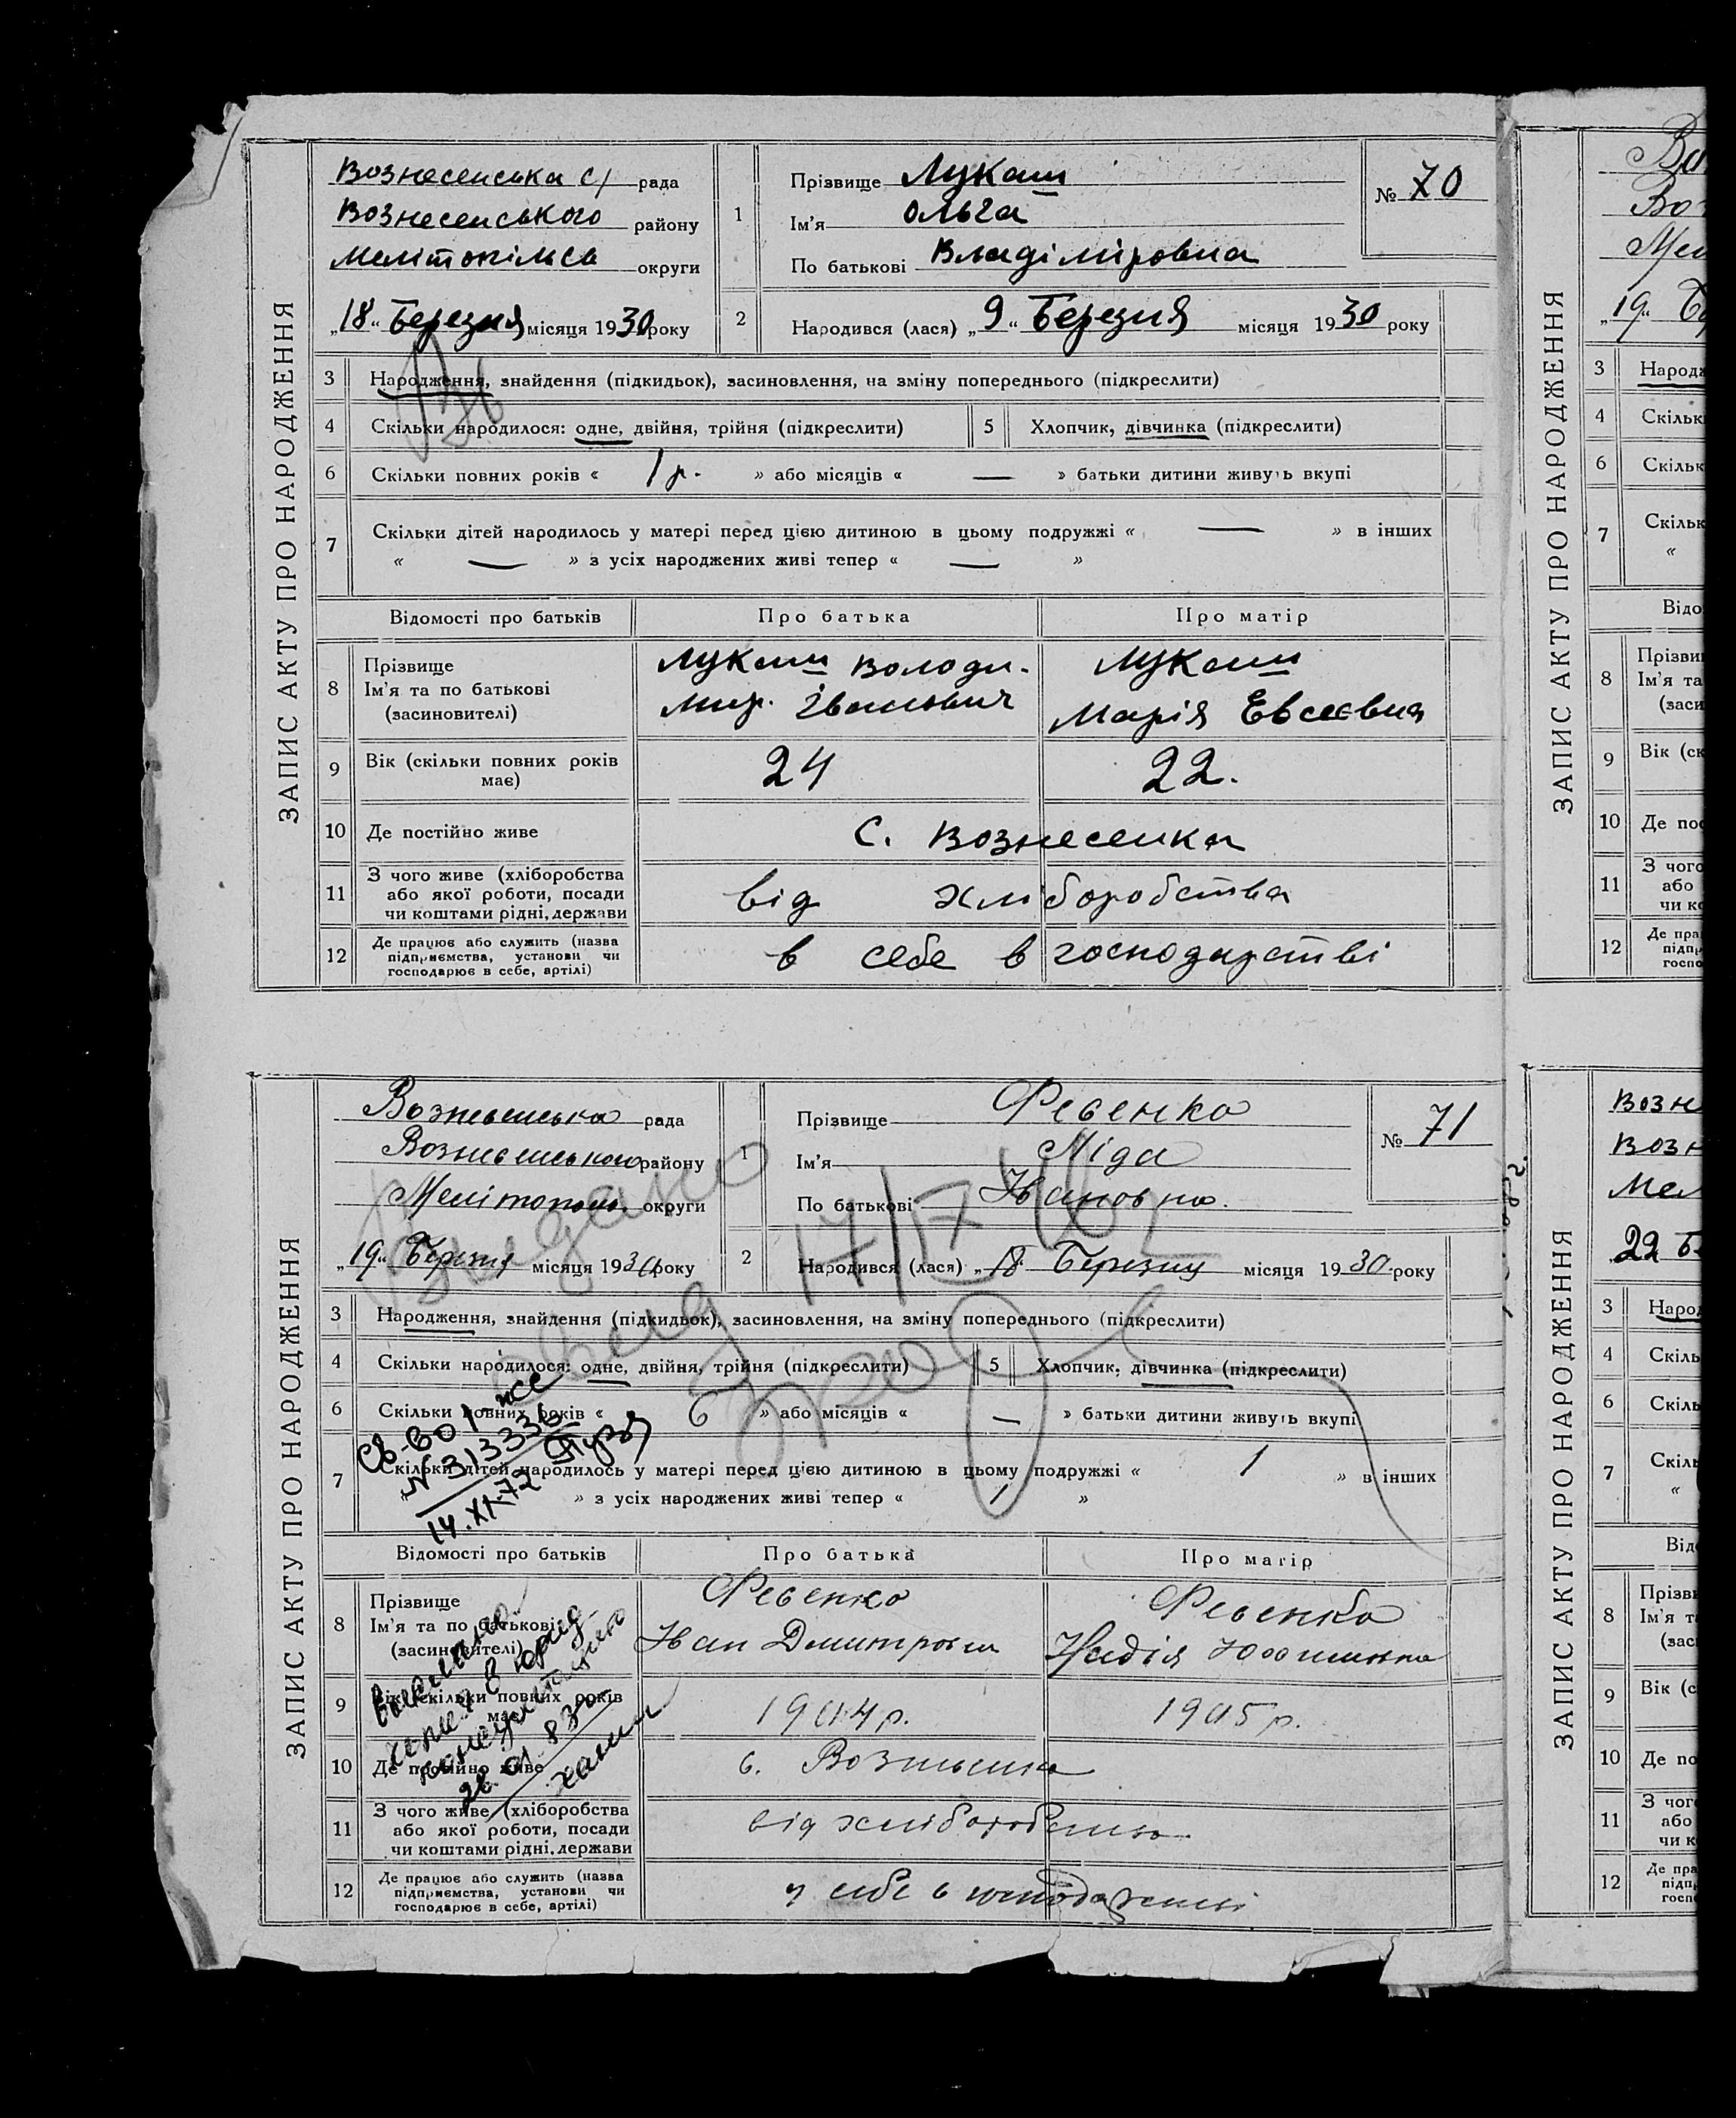 ЗАПИС АКТУ ПРО НАРОДЖЕННЯ
Вознесенська с/ рада
Вознесенського району
Мелітопільсь округи
„18“ Березня місяця 1930 року
1 Прізвище Лукаш
Ім'я Ольга
По батькові Владіміровна
№ 70
2 Народився (лася) „9“ Березня місяця 1930 року
3 Народження, знайдення (підкидьок), засиновлення, на зміну попереднього (підкреслити)
4 Скільки народилося: одне, двійня, трійня (підкреслити) 5 Хлопчик, дівчинка (підкреслити)
6 Скільки повних років « 1 р. » або місяців « — » батьки дитини живуть вкупі
7 Скільки дітей народилось у матері перед цією дитиною в цьому подружжі « — » в інших
« — » з усіх народжених живі тепер « — »
Відомості про батьків Про батька Про матір
8 Прізвище
Ім'я та по батькові
(засиновителі)
Лукаш Володи-
мир. Іванович
Лукаш
Марія Евсеєвна
9 Вік (скільки повних років
має) 24 22.
10 Де постійно живе с. Вознесенка
11 З чого живе (хліборобства
або якої роботи, посади
чи коштами рідні, держави
від хліборобства
12 Де працює або служить (назва
підприємства, установи чи
господарює в себе, артілі)
в себе в господарстві
ЗАПИС АКТУ ПРО НАРОДЖЕННЯ
Вознесенська рада
Вознесенського району
Мелітополь. округи
„19“ Березня місяця 1930 року
1 Прізвище Февенко
Ім'я Ліда
По батькові Івановна.
№ 71
2 Народився (лася) „18“ Березня місяця 1930 року
3 Народження, знайдення (підкидьок), засиновлення, на зміну попереднього (підкреслити)
4 Скільки народилося: одне, двійня, трійня (підкреслити) 5 Хлопчик, дівчинка (підкреслити)
6 Скільки повних років « 6 » або місяців « — » батьки дитини живуть вкупі
7 Скільки дітей народилось у матері перед цією дитиною в цьому подружжі « 1 » в інших
« » з усіх народжених живі тепер « 1 »
№ 313336
14.XI-72
Відомості про батьків Про батька Про матір
8 Прізвище
Ім'я та по батькові
(засиновителі)
Февенко
Іван Дмитрович
Февенко
Надія
9 Вік (скільки повних років
має) 1904 р. 1905 р.
10 Де постійно живе с. Вознесенка
11 З чого живе (хліборобства
або якої роботи, посади
чи коштами рідні, держави
від хліборобства
12 Де працює або служить (назва
підприємства, установи чи
господарює в себе, артілі)
у себе в господарстві
ЗАПИС АКТУ ПРО НАРОДЖЕННЯ
Во
Воз
Мел
„19“ Бе
3 Народж
4 Скільк
6 Скільк
7 Скільк
«
Відо
8 Прізви
Ім'я та
(заси
9 Вік (ск
10 Де пос
11 З чого
або
чи ко
12 Де пра
підпр
госпо
ЗАПИС АКТУ ПРО НАРОДЖЕННЯ
Возн
Возн
Мел
„22 Б
3 Народ
4 Скіль
6 Скіль
7 Скіль
«
Від
8 Прізв
Ім'я т
(зас
9 Вік (с
10 Де по
11 З чог
або
чи к
12 Де пра
підп
госп